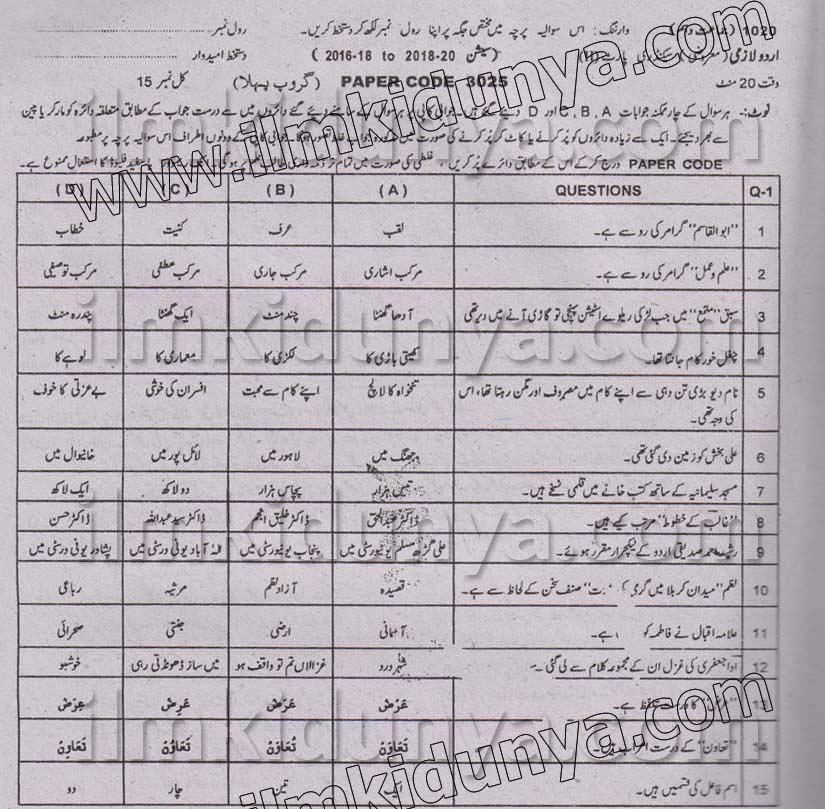 1020 وارننگ: اس سوالیہ پرچہ میں مختص جگہ پر اپنا رول نمبر لکھ کر دستخط کریں۔ رول نمبر
اردو لازمی (معروضی) (سیشن 2016-18 to 2018-20) دستخط امیدوار
وقت 20 منٹ PAPER CODE 3025 (گروپ پہلا) کل نمبر 15
نوٹ:- ہر سوال کے چار ممکنہ جوابات A, B, C اور D دیے گئے ہیں۔ جوابی کاپی پر ہر سوال کے سامنے دیے گئے دائروں میں سے درست جواب کے مطابق متعلقہ دائرہ کو مارکر یا پین
سے بھر دیجئے۔ ایک سے زیادہ دائروں کو پُر کرنے یا کاٹ کر پُر کرنے کی صورت میں جواب غلط تصور ہوگا۔ جوابی کاپی کے دونوں اطراف اس سوالیہ پرچہ پر مطبوعہ
PAPER CODE درج کر کے اس کے مطابق دائرے پُر کریں، غلطی کی صورت میں تمام تر ذمہ داری طالب علم پر ہوگی۔ سفید فلیوڈ کا استعمال ممنوع ہے۔
Q-1 QUESTIONS (A) (B) (C) (D)
1 "ابوالقاسم" گرامر کی رو سے ہے۔ لقب عرف کنیت خطاب
2 "علم و عمل" گرامر کی رو سے ہے۔ مرکب اشاری مرکب جاری مرکب عطفی مرکب توصیفی
3 سبق "ملمع" میں جب لڑکی ریلوے اسٹیشن پہنچی تو گاڑی آنے میں دیر تھی آدھا گھنٹا چند منٹ ایک گھنٹا پندرہ منٹ
4 چغل خور کام جانتا تھا۔ کھیتی باڑی کا لکڑی کا معماری کا لوہے کا
5 نام دیو بڑی تن دہی سے اپنے کام میں مصروف اور مگن رہتا تھا، اس تنخواہ کا لالچ اپنے کام سے محبت افسران کی خوشی بے عزتی کا خوف
کی وجہ تھی۔
6 علی بخش کو زمین دی گئی تھی۔ جھنگ میں لاہور میں لائل پور میں خانیوال میں
7 مسجد سلیمانیہ کے ساتھ کتب خانے میں قلمی نسخے ہیں۔ تیس ہزار پچاس ہزار دو لاکھ ایک لاکھ
8 "غالب کے خطوط" مرتب کیے ہیں۔ ڈاکٹر عبدالحق ڈاکٹر خلیق انجم ڈاکٹر سید عبداللہ ڈاکٹر حسن
9 رشید احمد صدیقی اردو کے لیکچرار مقرر ہوئے۔ علی گڑھ مسلم یونیورسٹی میں پنجاب یونیورسٹی میں الہٰ آباد یونی ورسٹی میں پشاور یونی ورسٹی میں
10 نظم "میدان کربلا میں گرمی کی شدت" صنف سخن کے لحاظ سے ہے۔ قصیدہ آزاد نظم مرثیہ رباعی
11 علامہ اقبال نے فاطمہ کو ہے۔ آسمانی ارضی جنتی صحرائی
12 ادا جعفری کی غزل ان کے مجموعہ کلام سے لی گئی شہر درد غزالاں تم تو واقف ہو میں ساز ڈھونڈتی رہی خوشبو
13 "عرض" کا درست تلفظ ہے۔ عَرْض عَرَض عَرِض عِرَض
14 "تعاون" کے درست اعراب ہیں۔ تَعَاوُن تُعَاوُن تَعَاوَن تَعَاوِن
15 اسم فاعل کی قسمیں ہیں۔ ایک تین چار دو
www.ilmkidunya.com
ilmkidunya.com
ilmkidunya.com
ilmkidunya.com
ilmkidunya.com
ilmkidunya.com